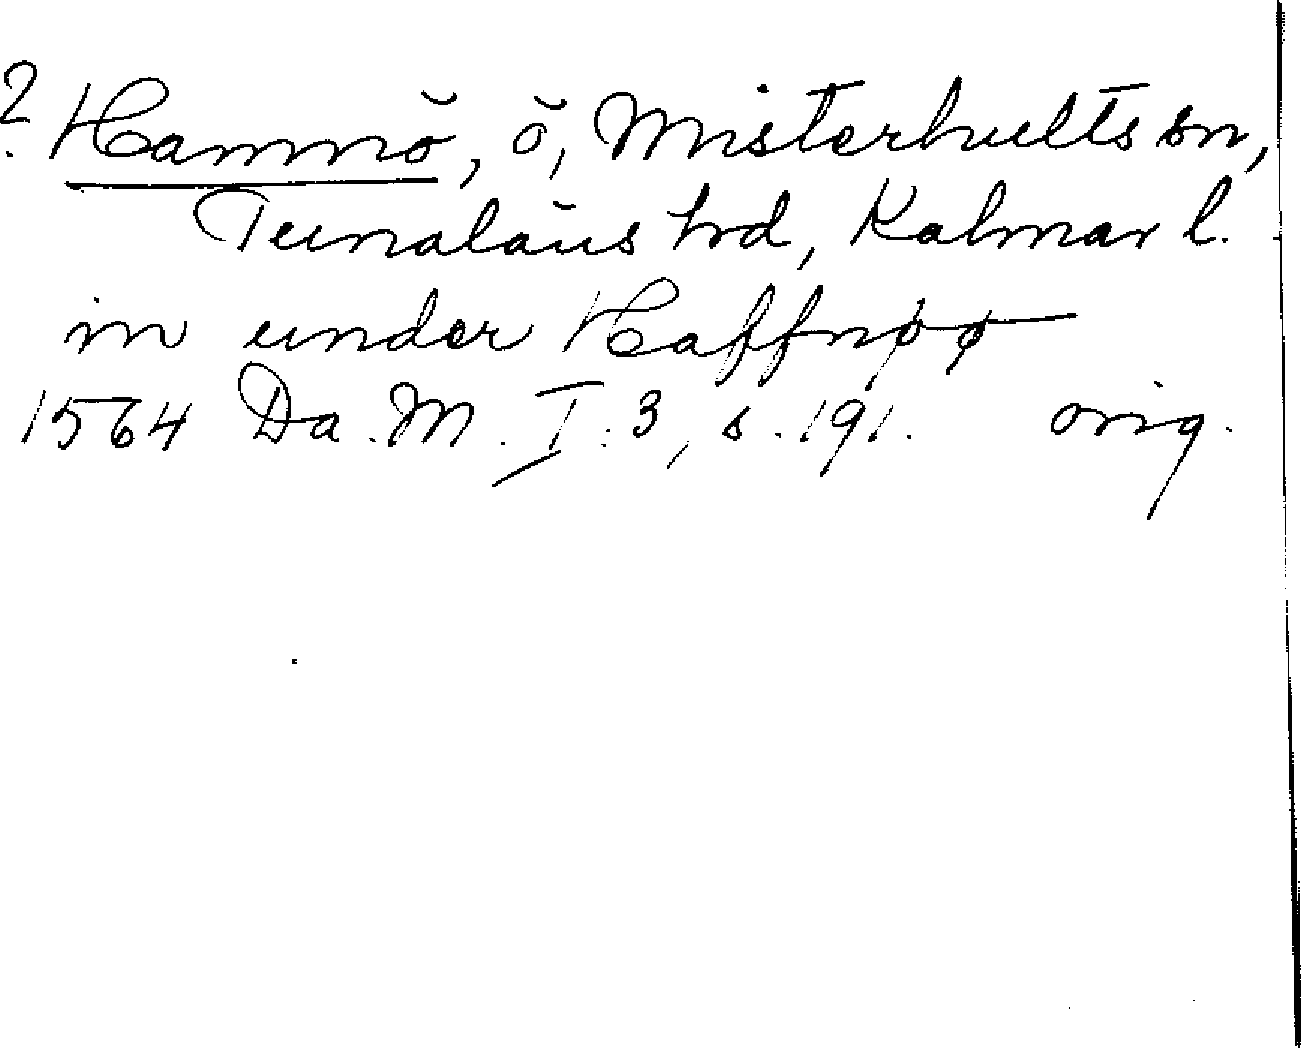 ? Hamnö, ö, Misterhults sn,
Tunaläns hd, Kalmar l.
in under Haffnøø
1564 Da. M. I:3, s. 191. orig.